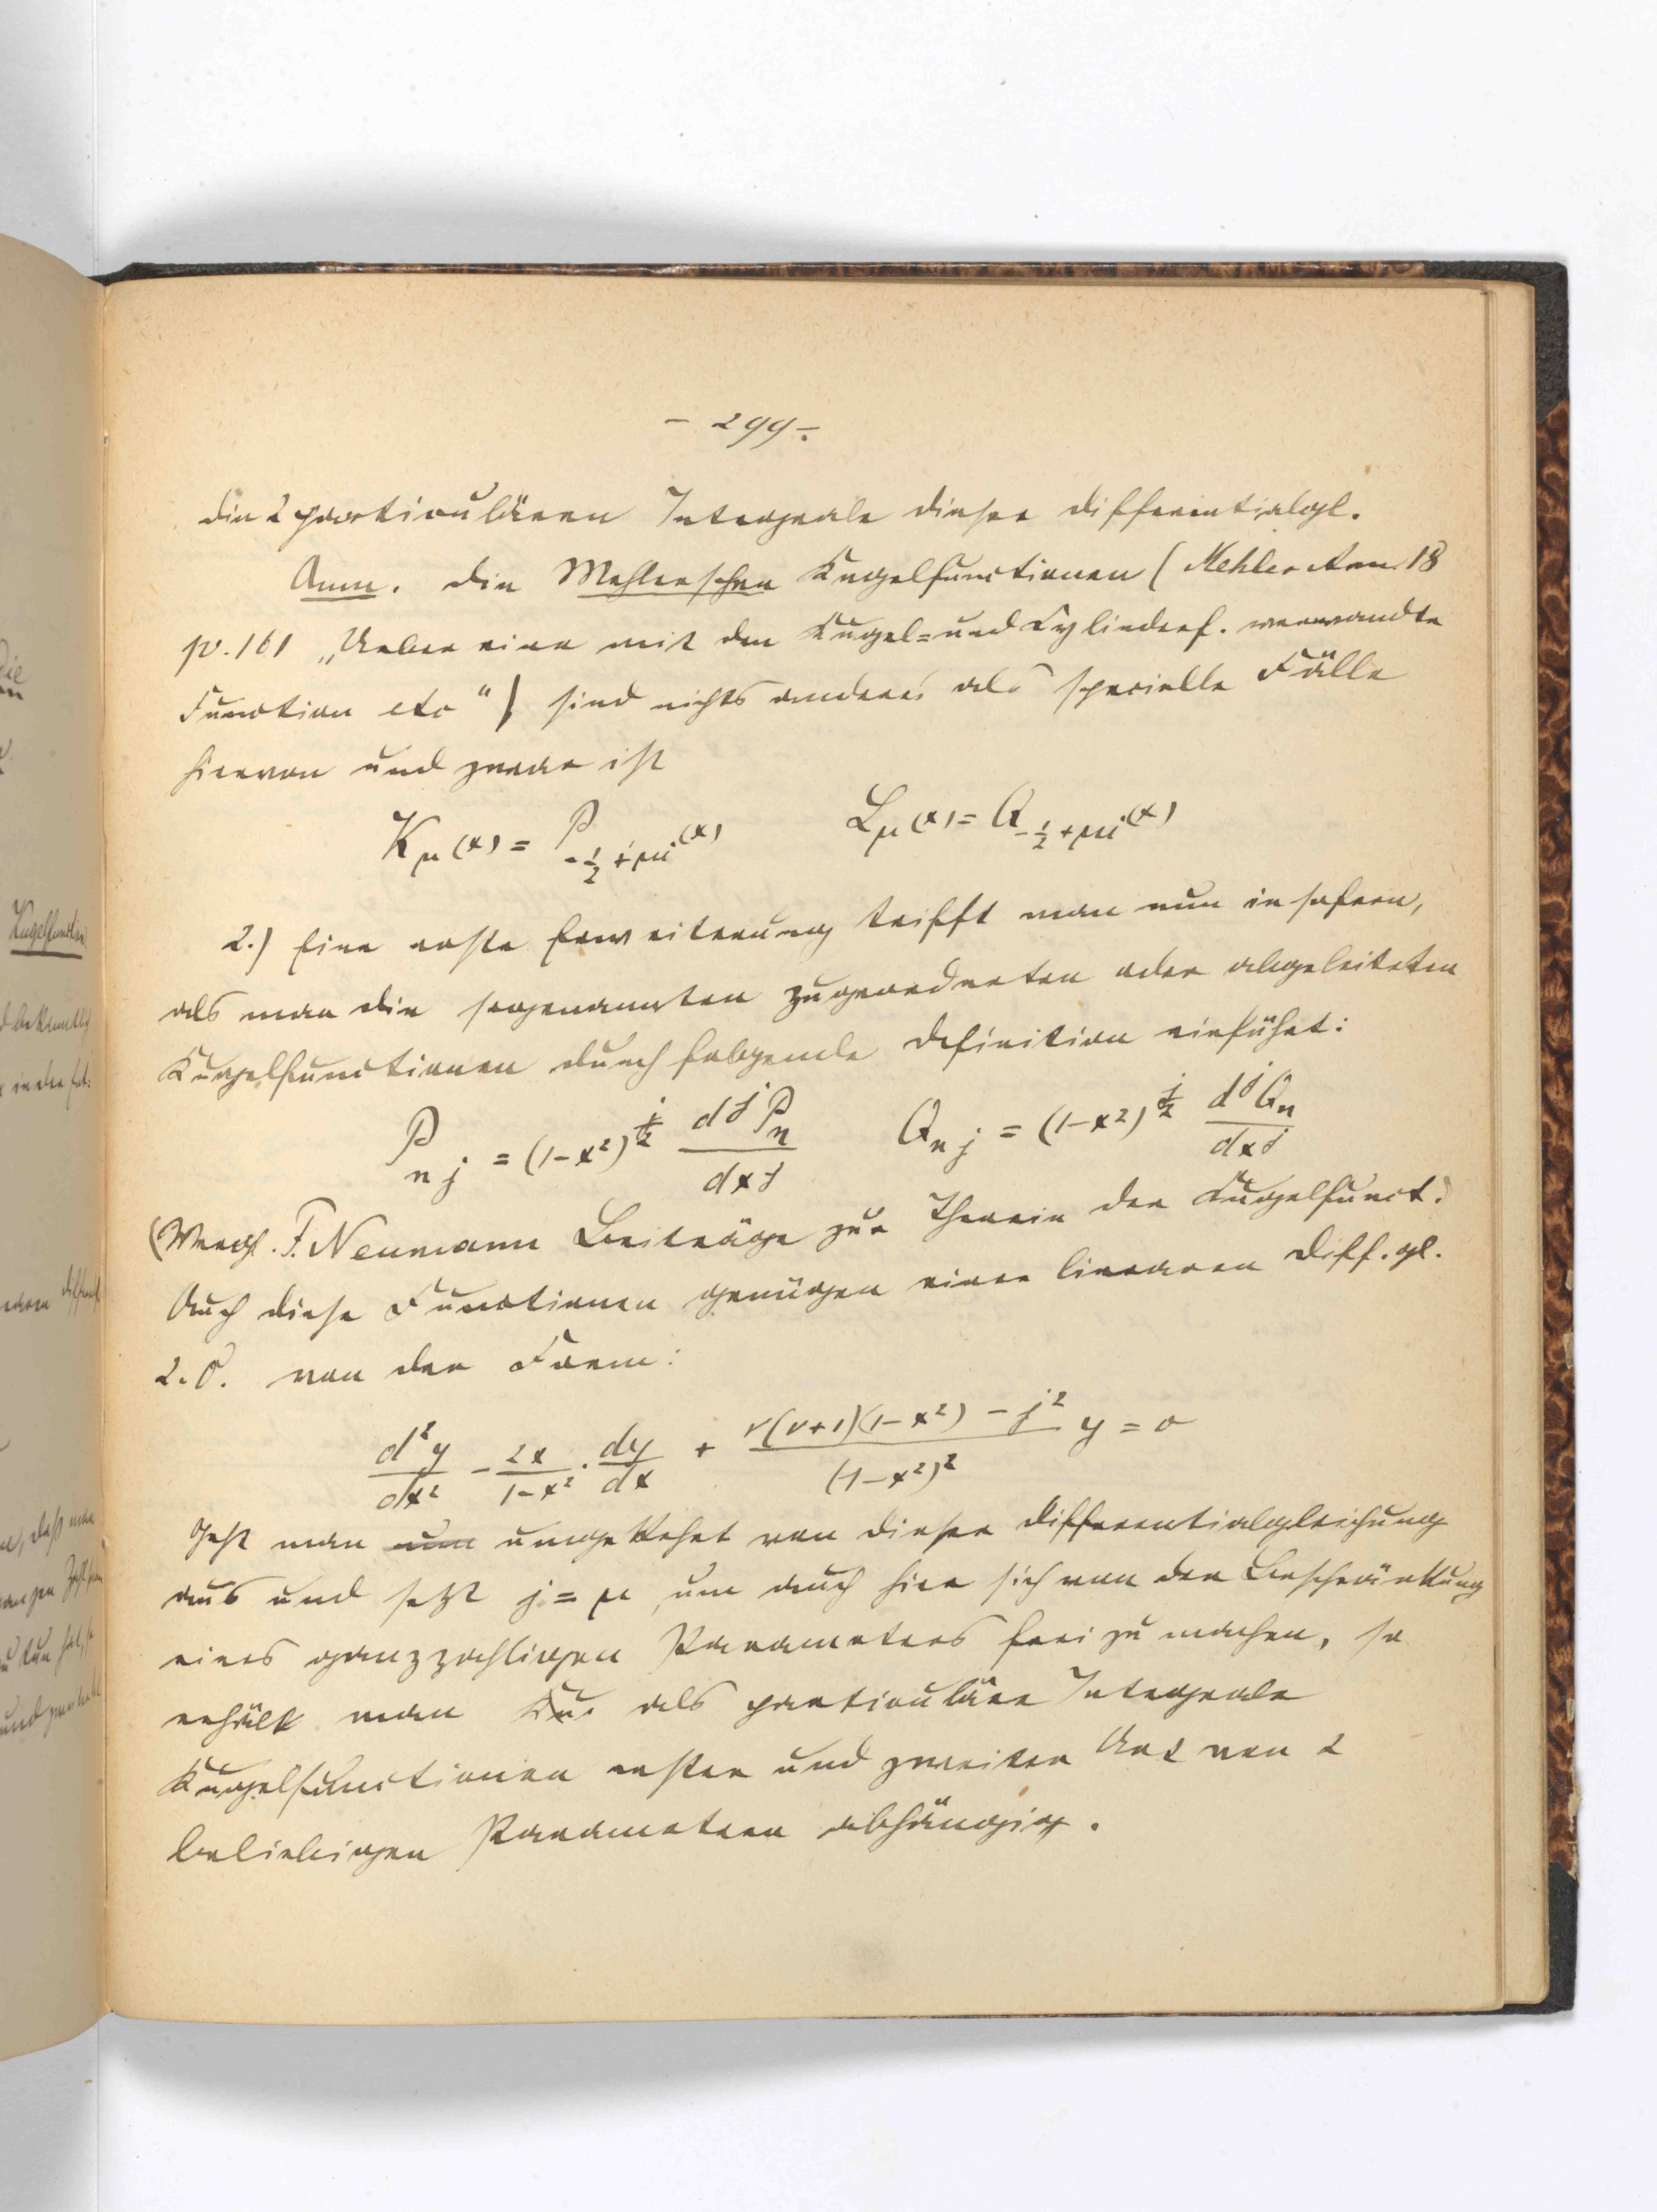 - 299 -.
die 2 particulären Integrale dieser Differentialgl.
Anm. Die Mehlerschen Kugelfunctionen (Mehler Ann. 18
p. 161 „Ueber eine mit den Kugel= und Cylinderf. verwandte
Function etc“) sind nichts anderes als specielle Fälle
hiervon und zwar ist
K_μ(x) = P_{-1/2+μi}(x) L_μ(x) = Q_{-1/2+μi}(x)
2.) Eine erste Erweiterung trifft man nun insofern,
als man die sogenannten zugeordneten oder abgeleiteten
Kugelfunctionen durch folgende Definition einführt:
P_{n j} = (1-x²)^{j/2} d^j P_n / dx^j Q_{n j} = (1-x²)^{j/2} d^j Q_n / dx^j
(Vergl. F. Neumann Beiträge zur Theorie der Kugelfunct.)
Auch diese Functionen genügen einer linearen Diff. gl.
2. O. von der Form:
d²y/dx² - 2x/1-x² · dy/dx + ν(ν+1)(1-x²) - j² / (1-x²)² y = 0
Geht man nun umgekehrt von dieser Differentialgleichung
aus und setzt j = μ, um auch hier sich von der Beschränkung
eines ganzzahligen Parameters frei zu machen, so
erhält man als particuläre Integrale
Kugelfunctionen erster und zweiter Art von 2
beliebigen Parametern abhängig.